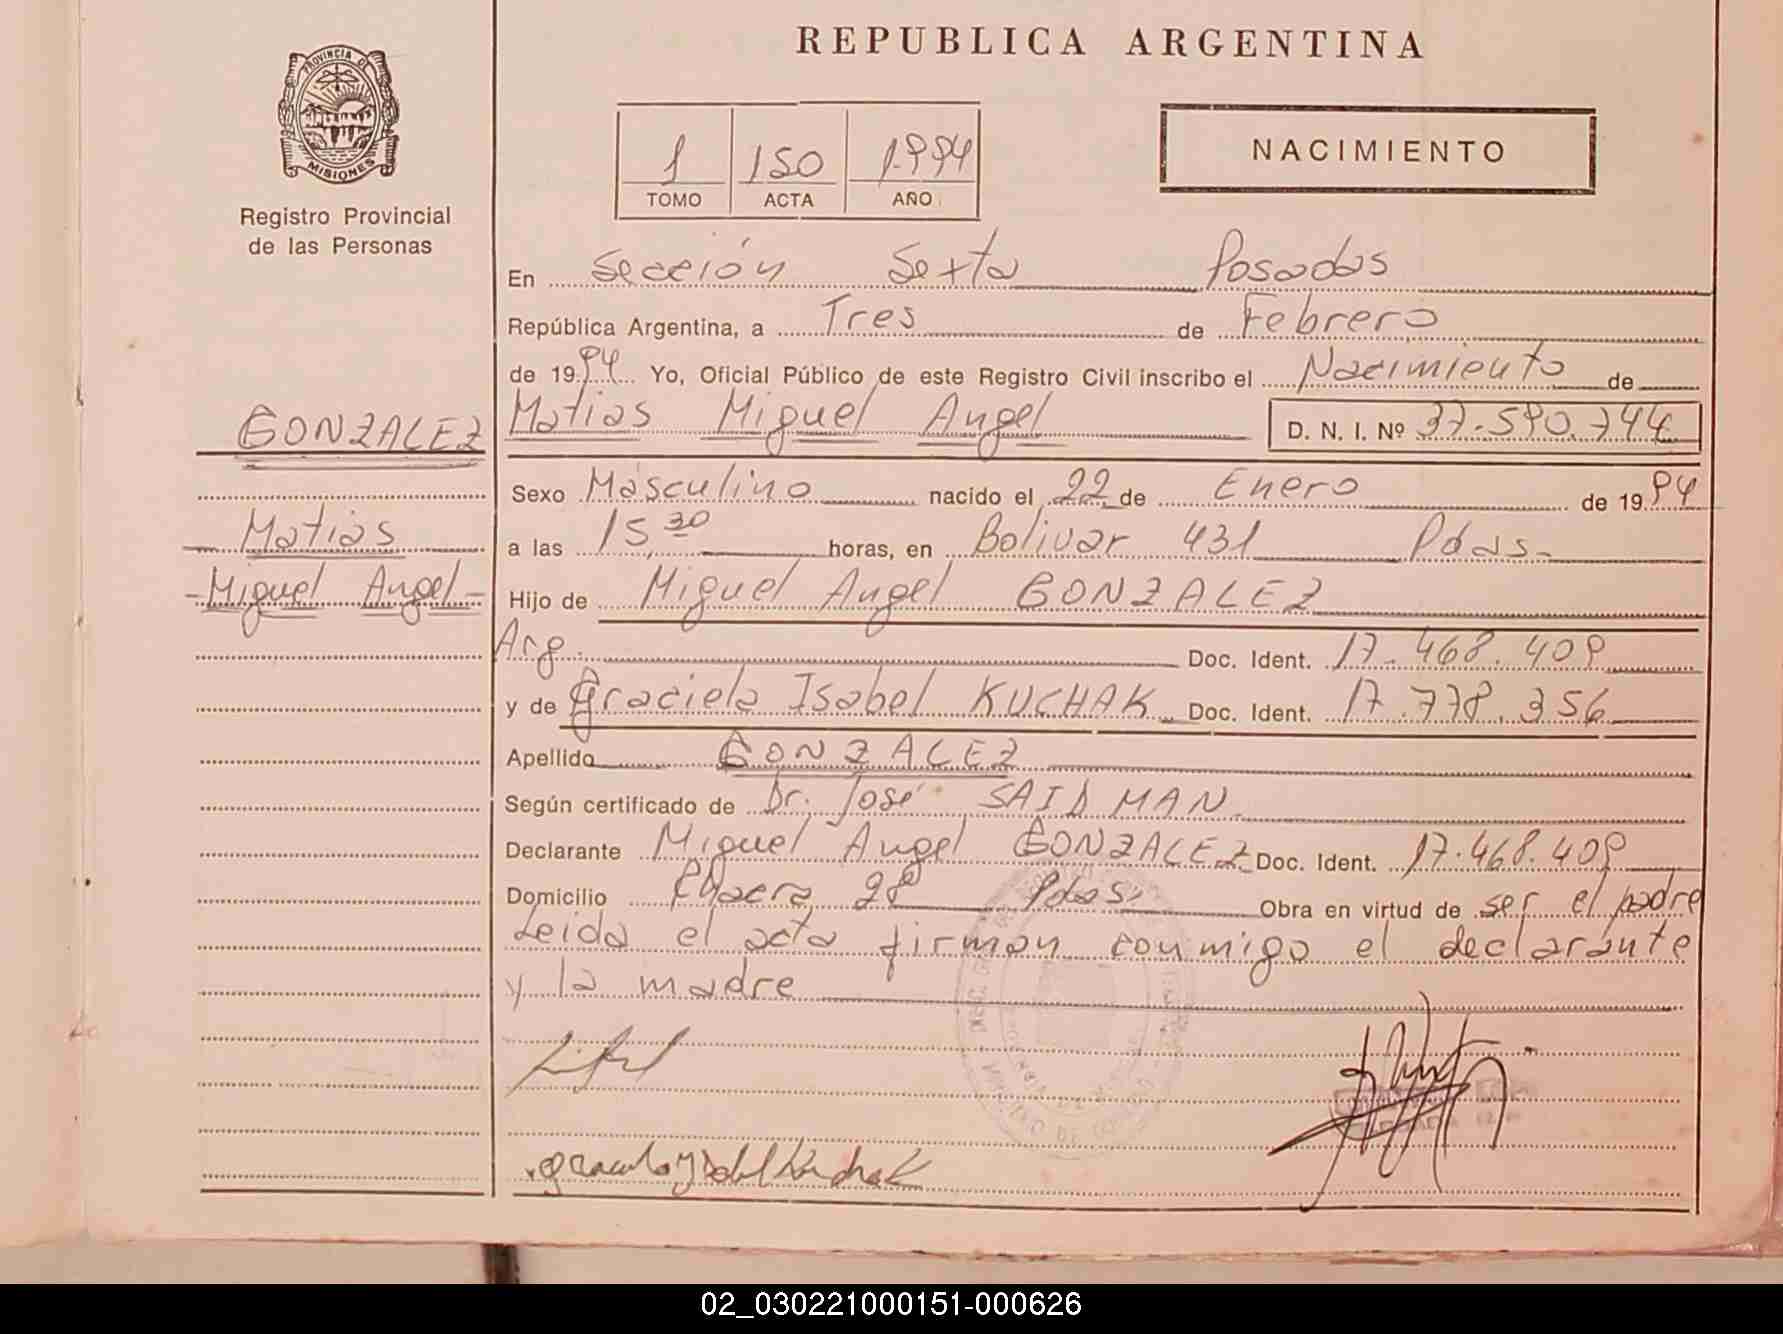 REPUBLICA ARGENTINA
PROVINCIA D
MISIONES
Registro Provincial
de las Personas
1 150 1.994
TOMO ACTA AÑO
NACIMIENTO
En Sección Sexta Posadas
República Argentina, a Tres de Febrero
de 1994 Yo, Oficial Público de este Registro Civil inscribo el Nacimiento de
GONZALEZ Matias Miguel Angel D. N. I. Nº 37.590.744
Sexo Masculino nacido el 22 de Enero de 1994
Matias
a las 15,30 horas, en Bolivar 431 Pdas.
Miguel Angel
Hijo de Miguel Angel GONZALEZ
Arg. Doc. Ident. 17.468.409
y de Graciela Isabel KUCHAK Doc. Ident. 17.778.356
Apellido GONZALEZ
Según certificado de Dr. José SAIDMAN
Declarante Miguel Angel GONZALEZ Doc. Ident. 17.468.409
Domicilio Chacra 28 Pdas. Obra en virtud de ser el padre
Leida el acta firman conmigo el declarante
y la madre
02_030221000151-000626